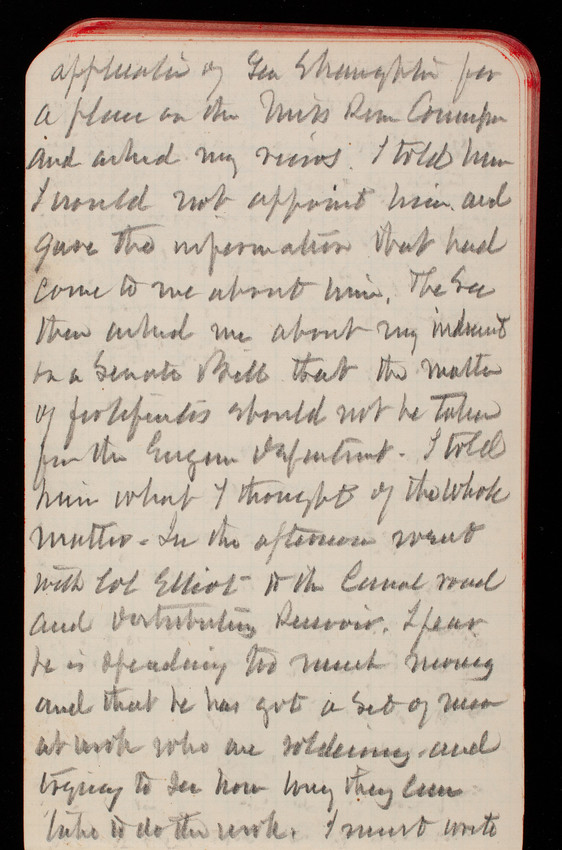 application of Geo Shaughtin for
a place on the Miss River Commission
and asked my views. I told him
I would not appoint him and
gave the information that had
come to me about him. The Sec
then asked me about my indorsement
on a Senate Bill that the matter
of fortificatis should not be taken
from the Engineer Department. I told
him what I thought of the whole
matter - In the afternoon went
with Col Elliot to the Canal road
and Distributing Reservoir. I fear
he is spending too much money
and that he has got a set of men
at work who are soldiering and
trying to see how long they can
take to do the work. I must write